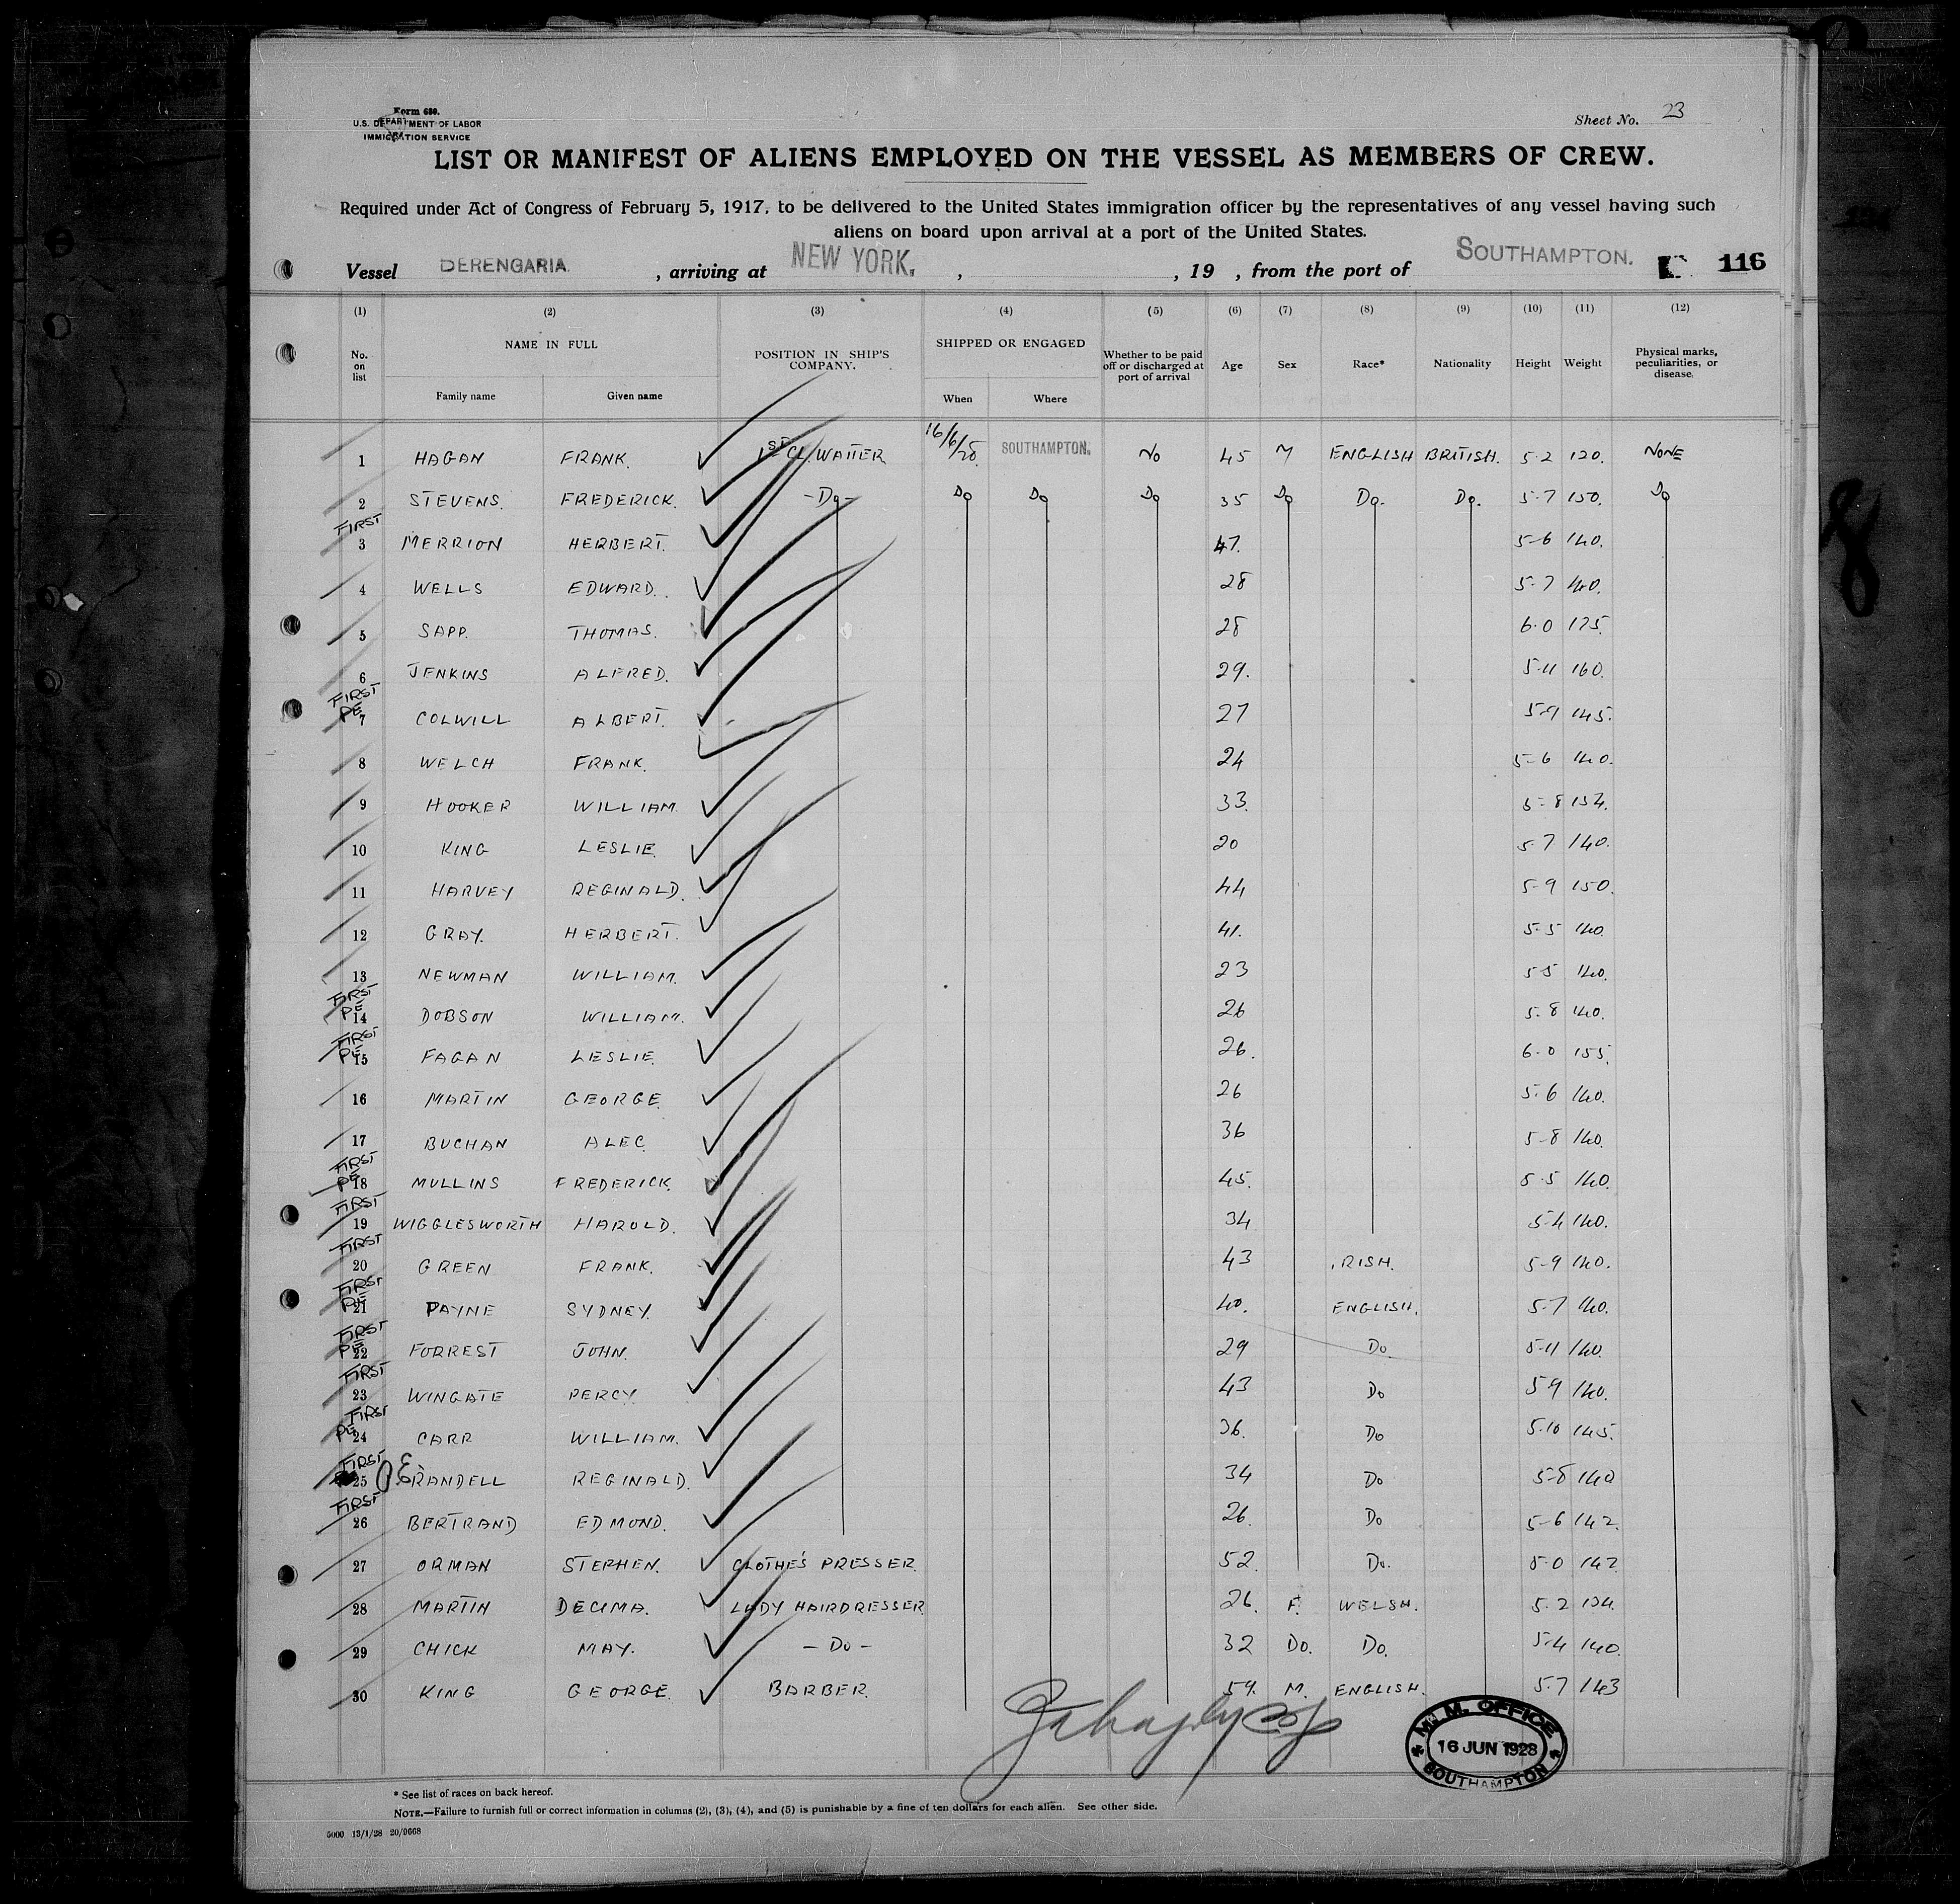 Form 680.
U.S. DEPARTMENT OF LABOR
IMMIGRATION SERVICE
Sheet No. 23
LIST OR MANIFEST OF ALIENS EMPLOYED ON THE VESSEL AS MEMBERS OF CREW.
Required under Act of Congress of February 5, 1917, to be delivered to the United States immigration officer by the representatives of any vessel having such
aliens on board upon arrival at a port of the United States.
Vessel BERENGARIA. , arriving at NEW YORK. , , 19 , from the port of SOUTHAMPTON. 116
(1) (2) (3) (4) (5) (6) (7) (8) (9) (10) (11) (12)
No. on list NAME IN FULL Family name Given name POSITION IN SHIP'S COMPANY. SHIPPED OR ENGAGED When Where Whether to be paid off or discharged at port of arrival Age Sex Race* Nationality Height Weight Physical marks, peculiarities, or disease.
1 HAGAN FRANK. 1ST CL. WAITER 16/6/28. SOUTHAMPTON. NO 45 M ENGLISH BRITISH. 5-2 120. NONE
2 STEVENS. FREDERICK. -Do- Do Do Do 35 Do Do. Do. 5-7 150. Do
FIRST
3 MERRION HERBERT. 47. 5-6 140.
4 WELLS EDWARD. 28 5-7 140.
5 SAPP. THOMAS. 28 6-0 175.
6 JENKINS ALFRED. 29. 5-11 160.
FIRST
PE 7 COLWILL ALBERT. 27 5-9 145.
8 WELCH FRANK. 24 5-6 140.
9 HOOKER WILLIAM. 33. 5-8 134.
10 KING LESLIE. 20 5-7 140.
11 HARVEY REGINALD. 44 5-9 150.
12 GRAY. HERBERT. 41. 5-5 140.
13 NEWMAN WILLIAM. 23 5-5 140.
FIRST
PE 14 DOBSON WILLIAM. 26 5-8 140.
FIRST
PE 15 FAGAN LESLIE. 26. 6-0 155.
16 MARTIN GEORGE. 26 5-6 140.
17 BUCHAN ALEC 36 5-8 140.
FIRST
PE 18 MULLINS FREDERICK. 45. 5-5 140.
FIRST
19 WIGGLESWORTH HAROLD. 34 5-4 140.
FIRST
20 GREEN FRANK. 43 IRISH. 5-9 140.
FIRST
PE 21 PAYNE SYDNEY. 40. ENGLISH. 5-7 140.
FIRST
PE 22 FORREST JOHN. 29 Do. 5-11 140.
FIRST
23 WINGATE PERCY. 43 Do 5-9 140.
FIRST
PE 24 CARR WILLIAM. 36. Do 5-10 145.
FIRST
25 PE RANDELL REGINALD. 34 Do 5-8 140
FIRST
26 BERTRAND EDMOND. 26. Do 5-6 142.
27 ORMAN STEPHEN. CLOTHE'S PRESSER. 52. Do. 5-0 142
28 MARTIN DECIMA. LADY HAIRDRESSER 26. F. WELSH. 5-2 134.
29 CHICK MAY. - Do - 32 Do. Do. 5-4 140.
30 KING GEORGE. BARBER. 59. M. ENGLISH. 5-7 143
M. M. OFFICE
16 JUN 1928
SOUTHAMPTON
* See list of races on back hereof.
NOTE.—Failure to furnish full or correct information in columns (2), (3), (4), and (5) is punishable by a fine of ten dollars for each alien. See other side.
5000 13/1/28 20/9668
8